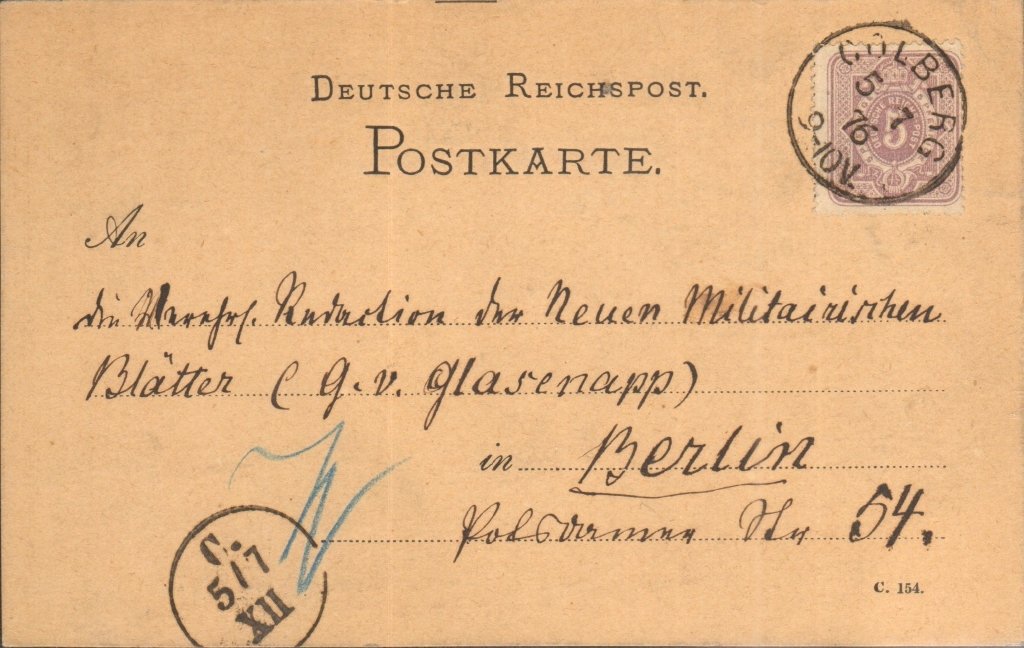 DEUTSCHE REICHSPOST.
POSTKARTE.
COLBERG
5 7
76
9-10V.
5
An
die Verehrl. Redaction der Neuen Militairischen
Blätter (G. v. Glasenapp)
in Berlin
Potsdamer Str 54.
C.
5/7
XII
C. 154.